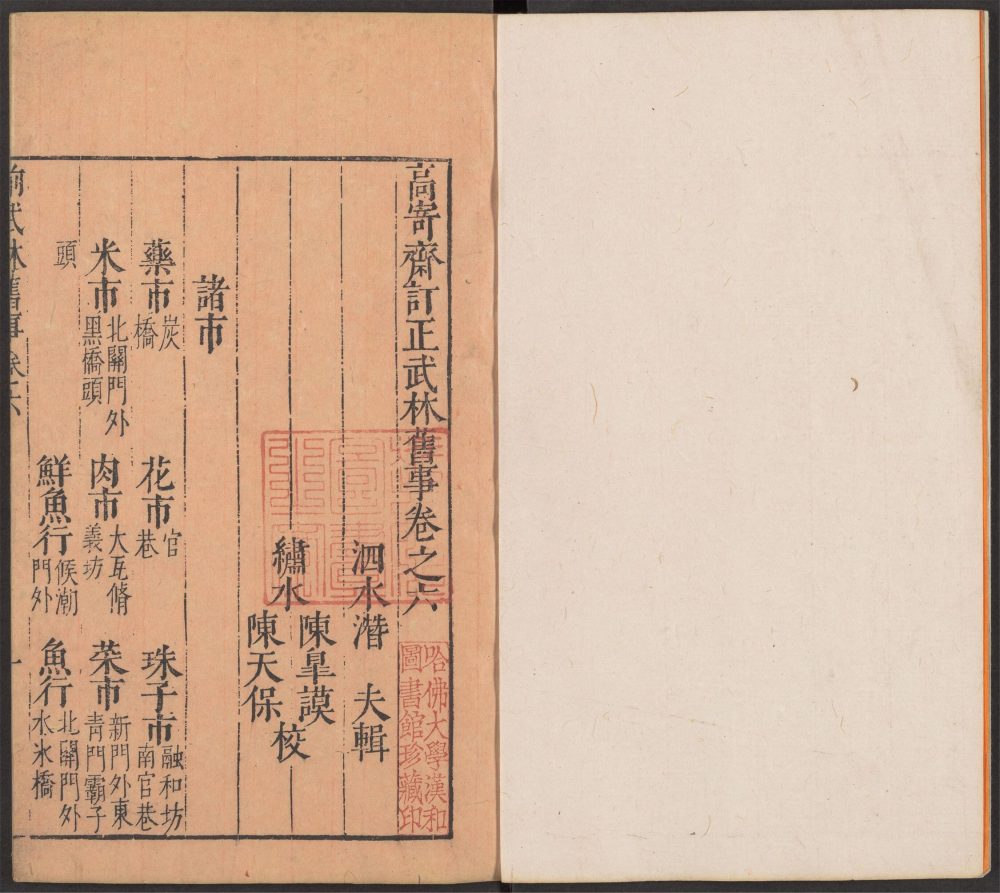 高寄齋訂正武林舊事卷之六
泗水潛夫輯
繡水陳臯謨
陳天保校
諸市
藥市炭橋 花市官巷 珠子市融和坊南官巷
米市北關門外黑橋頭 肉市大瓦脩義坊 菜市新門外東青門霸子
頭 鮮魚行候潮門外 魚行北關門外水氷橋
前武林舊事 卷六 一
哈佛大學漢和
圖書館珍藏印